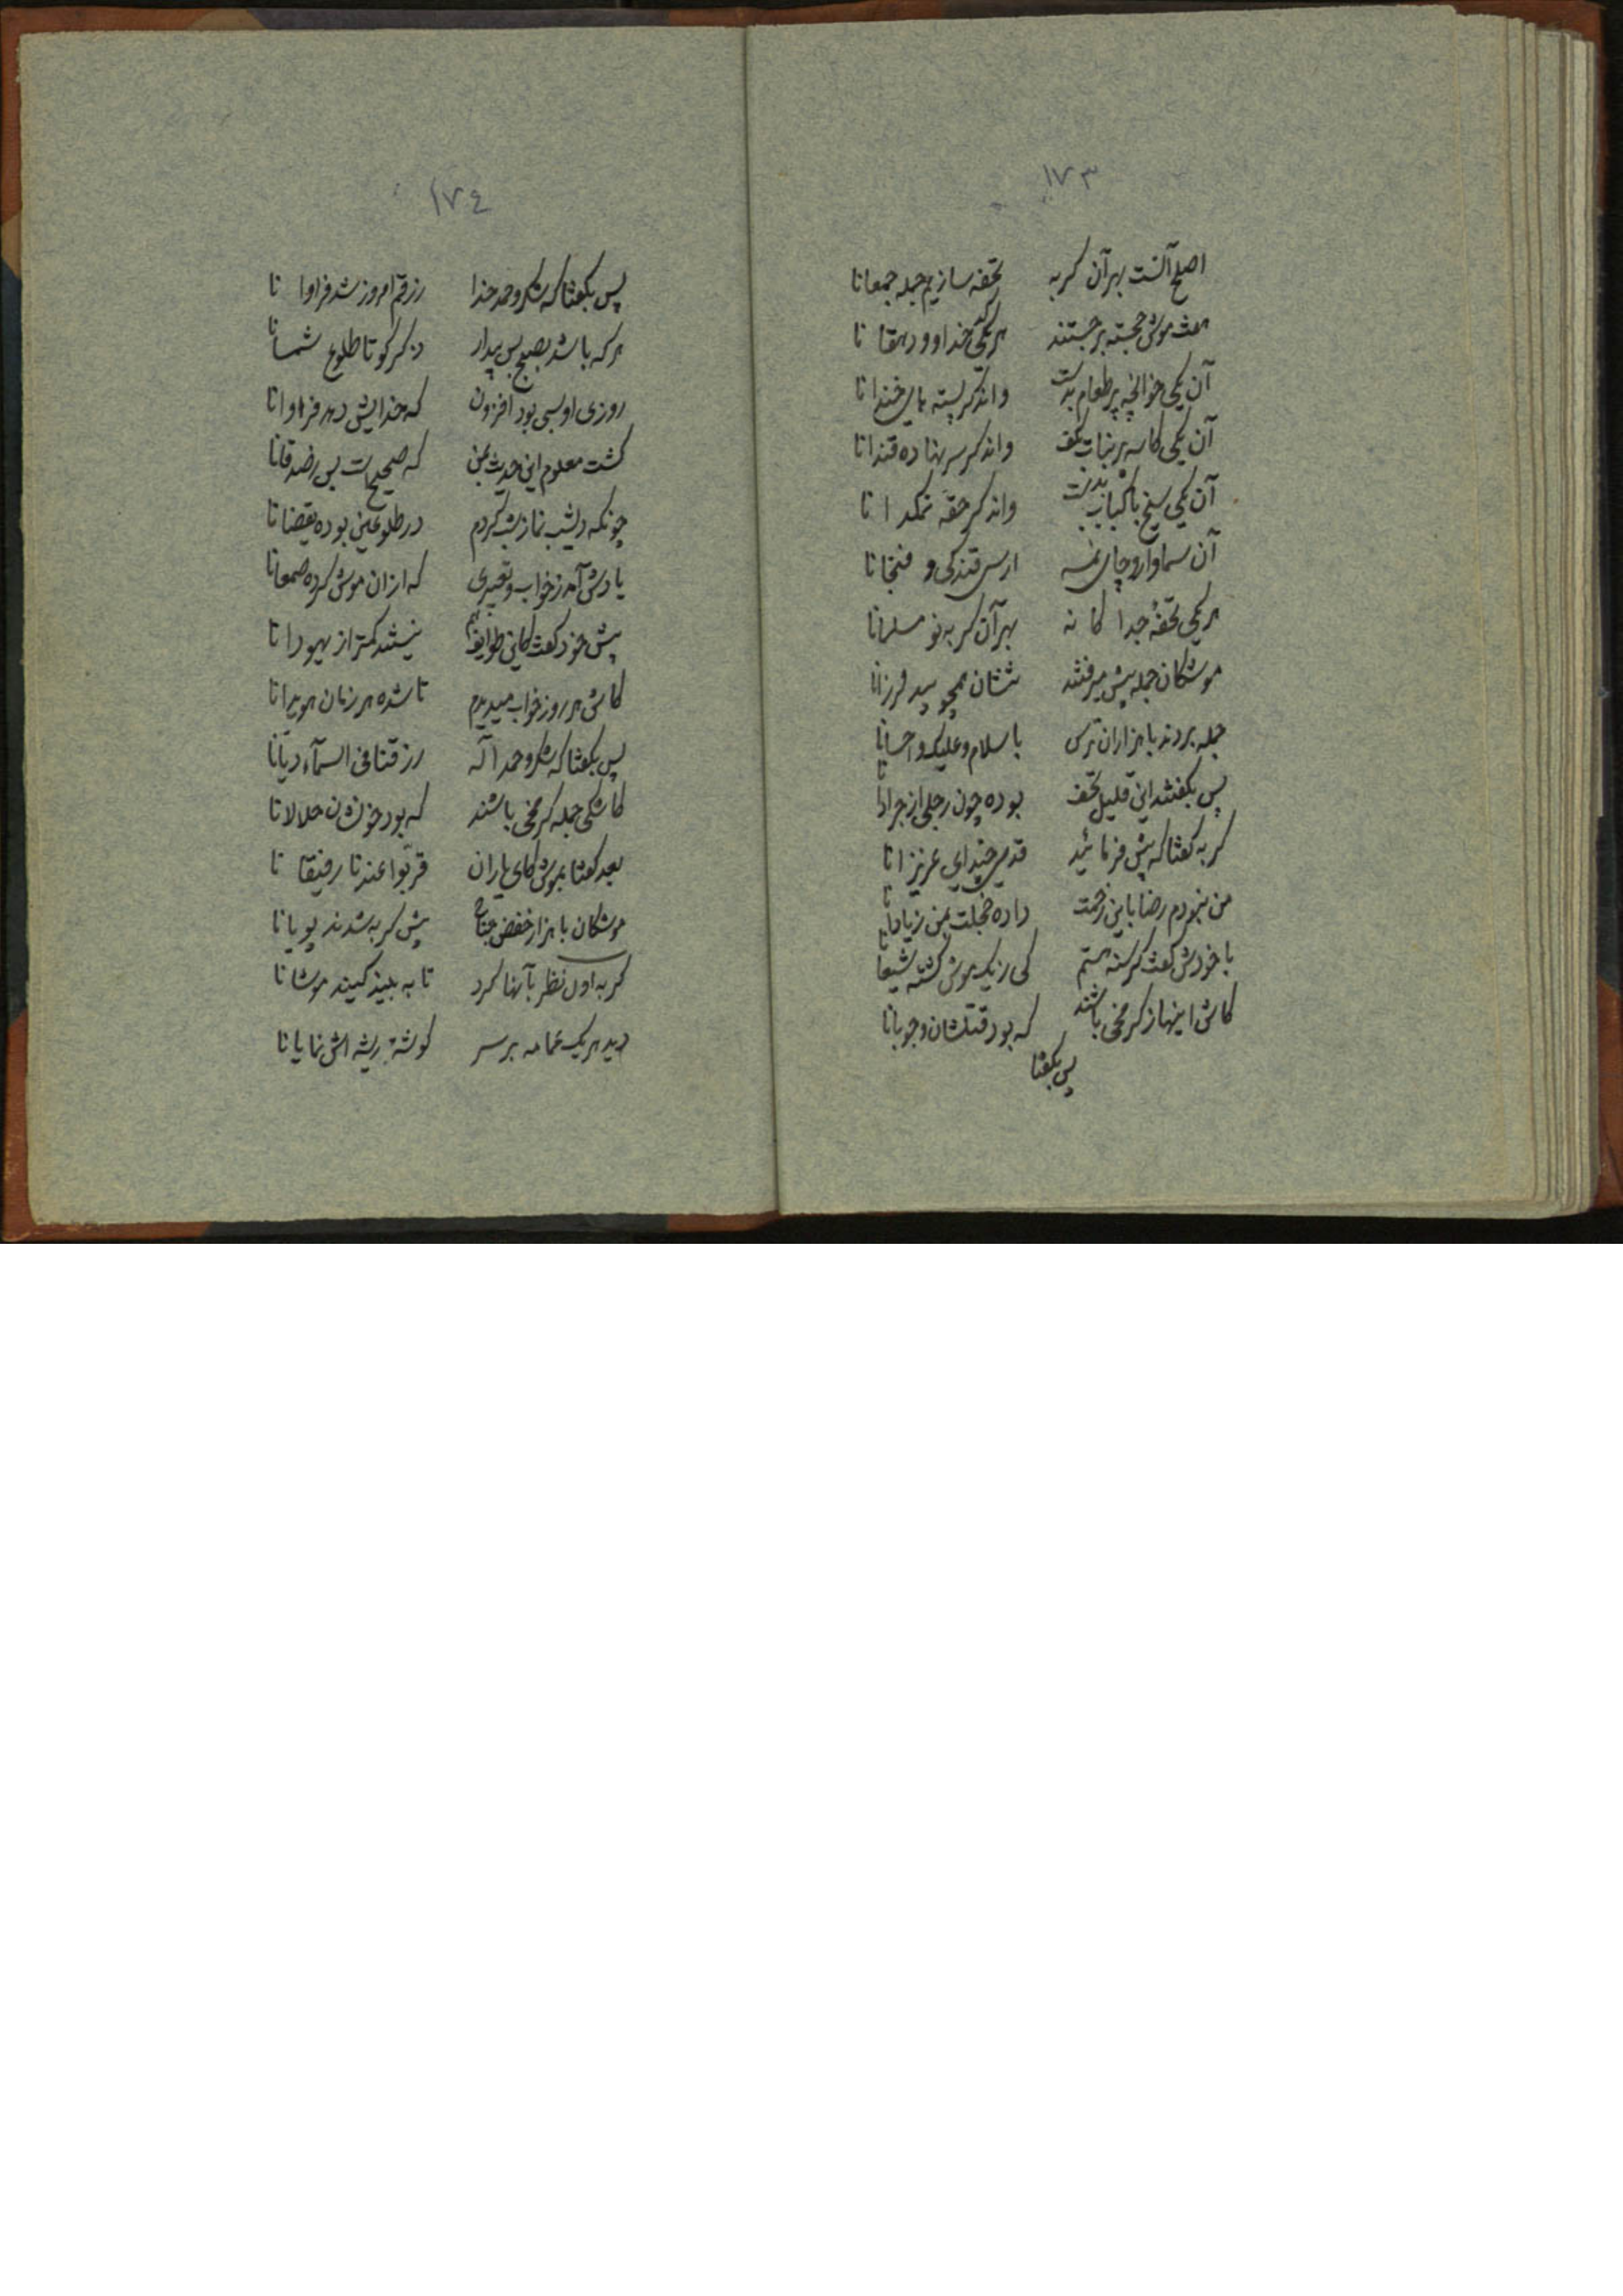 ١٧٣
اصلح آنست بهر آن کربه تحفه سازیم جمله جمعانا
هفت موش خجسته برجستند هر یکی کدخدا و دهقانا
آن یکی خوانچه پر طعام بدست واندکر پسته های خندانا
آن یکی کاسه پر نبات بکف واندکر سر نهاده قندانا
آن یکی سیخ با کباب بدست واندکر حقه نمکدانا
آن سماوار و چای نمسه ارسی قندکی و فنجانا
هر یکی تحفهٔ جداکانه بهر آن کربه نو مسلمانا
موشکان جمله پیش میرفتند تنشان همچو بید لرزانا
جمله بردند با هزاران ترس با سلام و علیک و احسانا
پس بکفتند این قلیل تحف بوده چون رجلی از جرادانا
کربه کفتا که پیش فرمائید قدمی چند ای عزیزانا
من نبودم رضا باین زحمت داده خجلت بمن زیادانا
با خودش کفت کرسنه هستم کی ز یک موش کشته شبعانا
کاش اینها ز کرمخی باشند که بود قتلشان وجوبانا
پس بکفتا
١٧٤
پس بکفتا که شکر و حمد خدا رزقم امروز شد فراوانا
هرکه باشد بصبح بس بیدار ذکر کو تا طلوع شمسانا
روزی او بسی بود افزون که خدایش دهد فراوانا
کشت معلوم این حدیث بمن که صحیح است بس صدقانا
چونکه دیشب نماز شب کردم در طلوعین بوده یقضانا
یادش آمد ز خواب و تعبیری که از آن موش کرده صمعانا
پیش خود کفت کاین طوایف هم نیستند کمتر از یهودانا
کاش هر روز خواب میدیدم تا شده هر زمان هویدانا
پس بکفتا که شکر و حمد اله رزقنا فی السمآء دیانا
کاشکی جمله کرمخی باشند که بود خونشان حلالانا
بعد کفتا بموش کای یاران قربوا عندنا رفیقانا
موشکان با هزار خفض جناح پیش کربه شدند پویانا
کربه اول نظر بآنها کرد تا به بیند کیند موشانا
دید هر یک عمامه بر سر کوشهٔ ریشه اش نمایانا